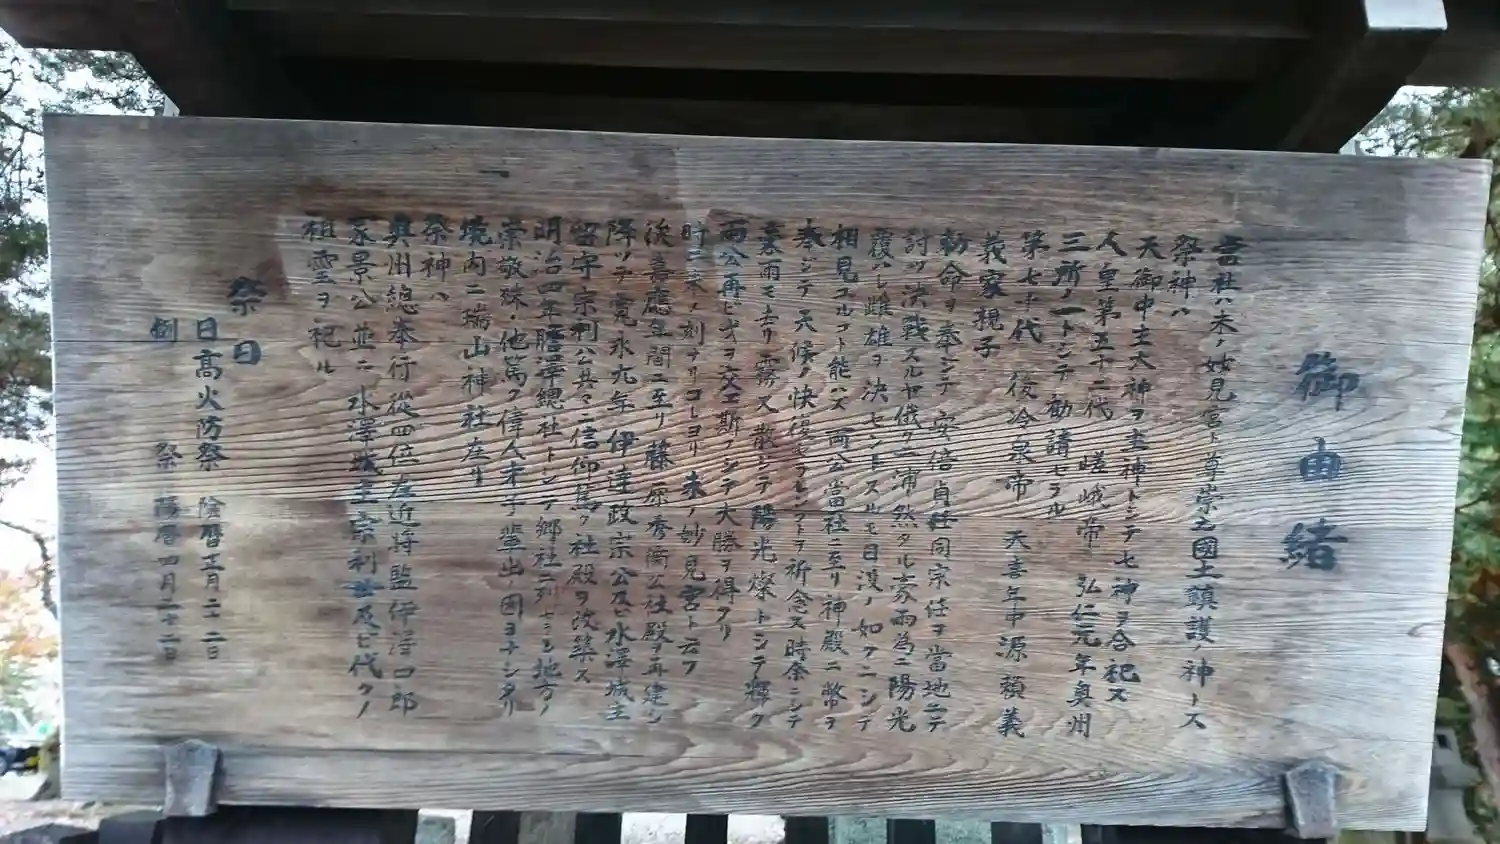 御由緒
當社ハ未ノ妙見宮ト尊崇シ國土鎮護ノ神トス
祭神ハ
天御中主大神ヲ主神トシテ七神ヲ合祀ス
人皇第五十二代 嵯峨帝 弘仁元年奥州
三所ノ一トシテ勧請セラル
第七十代 後冷泉帝 天喜年中 源頼義
義家親子
勅命ヲ奉シテ安倍貞任同宗任ヲ當地ニテ
討ツ決戦スルヤ俄ニ沛然タル豪雨為ニ陽光
覆ハレ雌雄ヲ決セントスルモ日没ノ如クニシテ
相見エルコト能ハズ両公當社ニ至リ神殿ニ幣ヲ
奉シテ天候ノ快復セラレンコトヲ祈念ス時余ニシテ
豪雨モ去リ霧又散シテ陽光燦トシテ輝ク
両公再ビ戈ヲ交エ斯クシテ大勝ヲ得タリ
時ニ未ノ刻ナリコレヨリ未ノ妙見宮ト云フ
後嘉應年間ニ至リ藤原秀衡公社殿ヲ再建シ
降ツテ寛永九年伊達政宗公及ビ水澤城主
留守宗利公共々ニ信仰篤ク社殿ヲ改築ス
明治四年膽澤總社トシテ郷社ニ列セラレ地方ノ
崇敬殊ノ他篤ク偉人才子輩出ノ因ヨナシタリ
境内ニ瑞山神社在リ
祭神ハ
奥州總奉行從四位左近将監伊澤四郎
家景公並ニ水澤城主宗利公及ビ代々ノ
祖霊ヲ祀ル
祭日
日高火防祭 陰暦正月二十二日
例 祭 陽暦四月二十二日